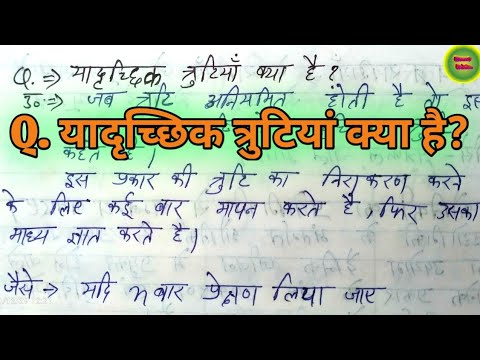 Q. ⇒ यादृच्छिक त्रुटियाँ क्या है ?
उ० ⇒ जब त्रुटि अनियमित होती है तो इस
Q. यादृच्छिक त्रुटियां क्या है?
कहते है।
इस प्रकार की त्रुटि का निराकरण करने
के लिए कई बार मापन करते है, फिर उसका
माध्य ज्ञात करते है।
जैसे → यदि n बार प्रेक्षण लिया जाए